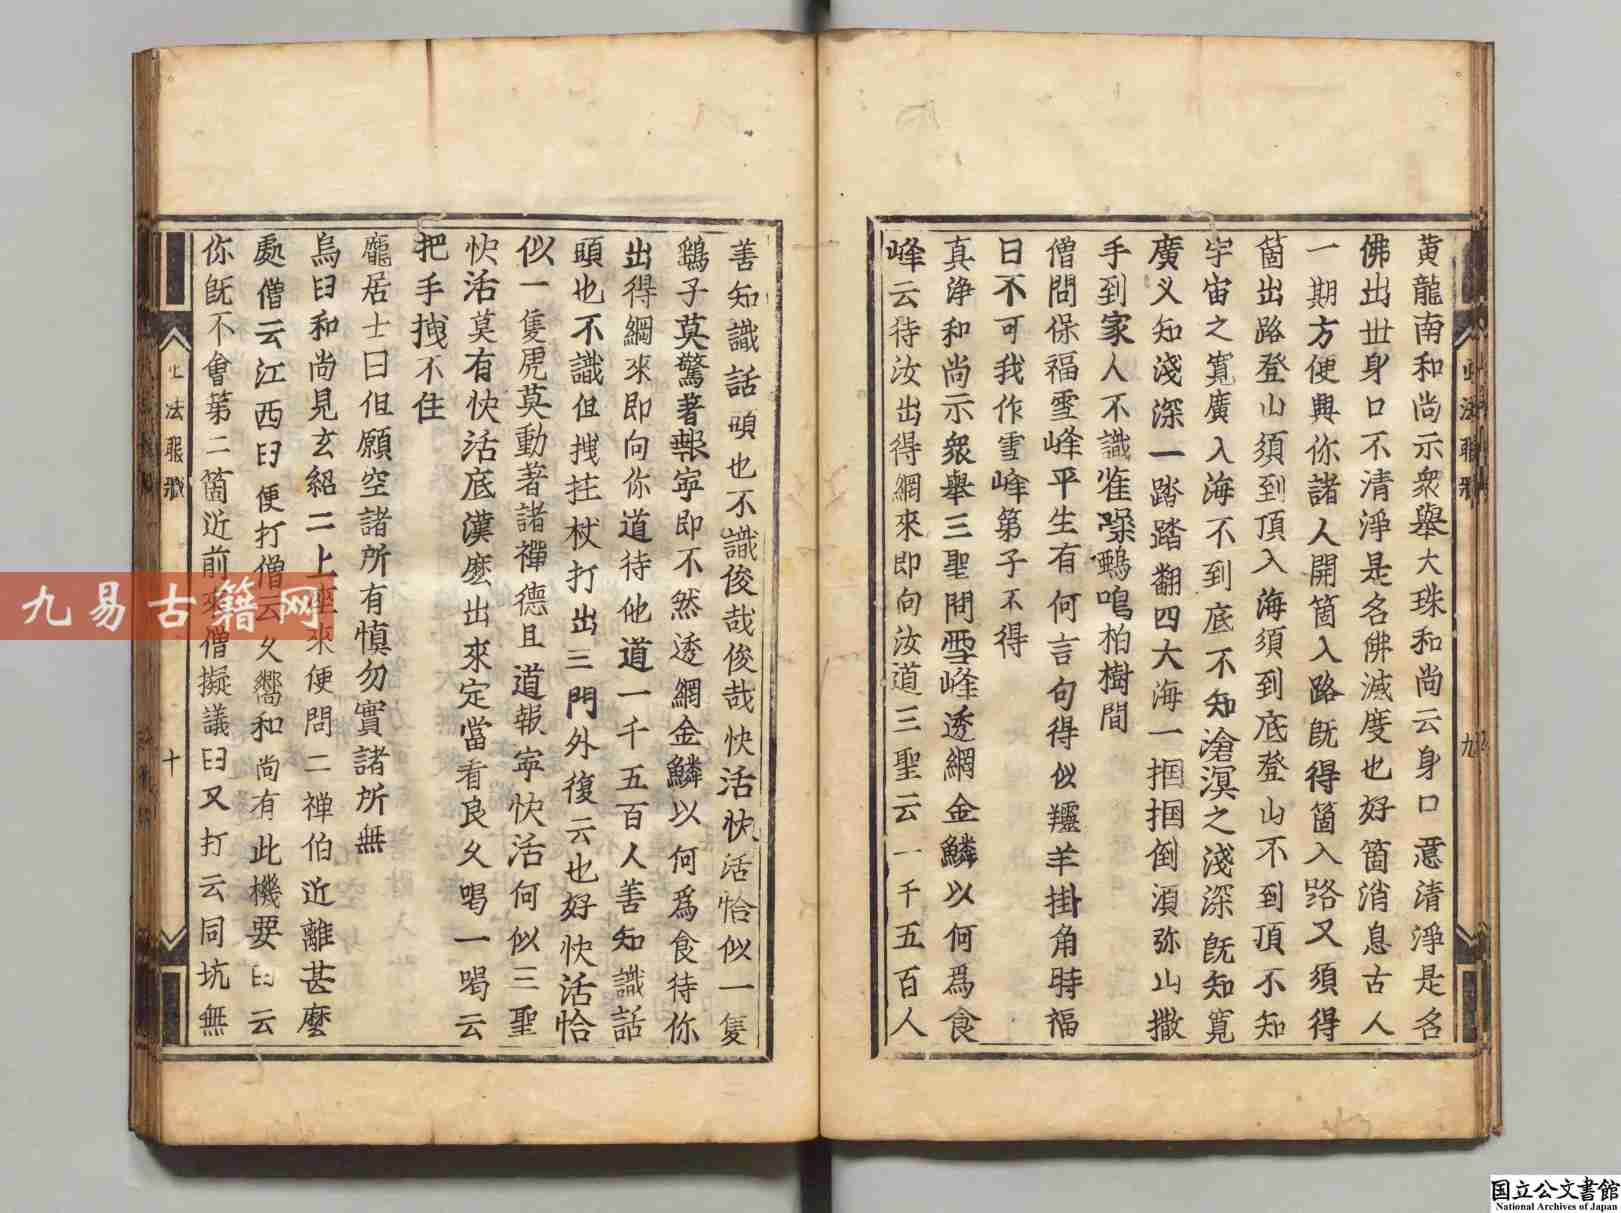 黄龍南和尚示衆舉大珠和尚云身口意清淨是名
佛出世身口不清淨是名佛滅度也好箇消息古人
一期方便與你諸人開箇入路既得箇入路又須得
箇出路登山須到頂入海須到底登山不到頂不知
宇宙之寬廣入海不到底不知滄溟之淺深既知寬
廣又知淺深一踏踏翻四大海一摑摑倒湏弥山撒
手到家人不識雀噪鵶鳴柏樹間
僧問保福雪峰平生有何言句得似羺羊掛角時福
曰不可我作雪峰第子不得
真淨和尚示衆舉三聖問雪峰透網金鱗以何爲食
峰云待汝出得網來即向汝道三聖云一千五百人
善知識話頭也不識俊哉俊哉快活快活恰似一隻
鷂子莫驚著報寧即不然透網金鱗以何爲食待你
出得網來即向你道待他道一千五百人善知識話
頭也不識但拽拄杖打出三門外復云也好快活恰
似一隻虎莫動著諸禪德且道報寧快活何似三聖
快活莫有快活底漢麽出來定當看良久喝一喝云
把手拽不住
龐居士曰但願空諸所有慎勿實諸所無
烏臼和尚見玄紹二上座來便問二禅伯近離甚麽
處僧云江西臼便打僧云久嚮和尚有此機要臼云
你既不會第二箇近前來僧擬議臼又打云同坑無
正法眼藏
九
正法眼藏
十
九易古籍网
国立公文書館
National Archives of Japan